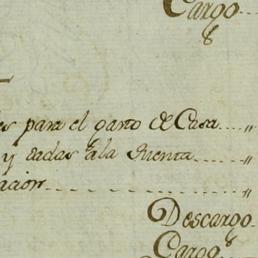 Cargo
es para el gasto de Casa
y dadas a la Cuenta
ación
Descargo
Cargo